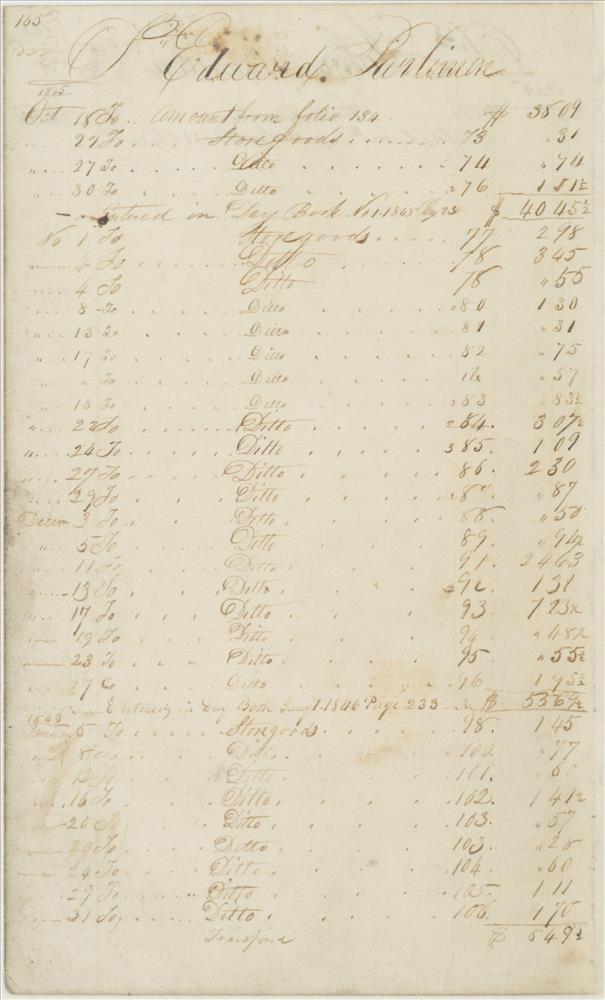 165
Edward
1845
Oct 18 To .. Amount from folio 134 $ 38 09
22 To Storegoods 73 " 31
" 27 To Ditto 74 " 74
" 30 To Ditto 76 1 31½
Entered in Day Book $ 40 45½
No 1 To Storegoods 77 2 98
4 To Ditto 78 3 45
4 To Ditto 78 " 55
8 To Ditto 80 1 30
" 13 To Ditto 81 " 31
" 17 To Ditto 82 " 75
" " To Ditto " 57
" 18 To Ditto 83 " 83½
" 22 To Ditto 84. 3 07½
" 24 To Ditto 85. 1 09
27 To Ditto 86. 2 30
29 To Ditto 87. " 87
Decem 3 To Ditto 88. " 50
" 5 To Ditto 89. " 94½
11 To Ditto 91. 24 63
13 To Ditto 92. 1 31
" 17 To Ditto 93 7 23½
19 To Ditto 94 " 48½
23 To Ditto 95 " 55½
27 To Ditto 96 1 95½
Entered in Day Book Jany 1. 1846 Page 233 $ 53 69½
5 To Storegoods 98. 1 45
8 To Ditto 100. " 77
12 To Ditto 101. " 60
16 To Ditto 102. 1 41½
20 To Ditto 103. " 57
To Ditto 103. " 28
24 To Ditto 104. " 60
29 To Ditto 105 1 11
31 To Ditto 106. 1 70
$ 8 49½